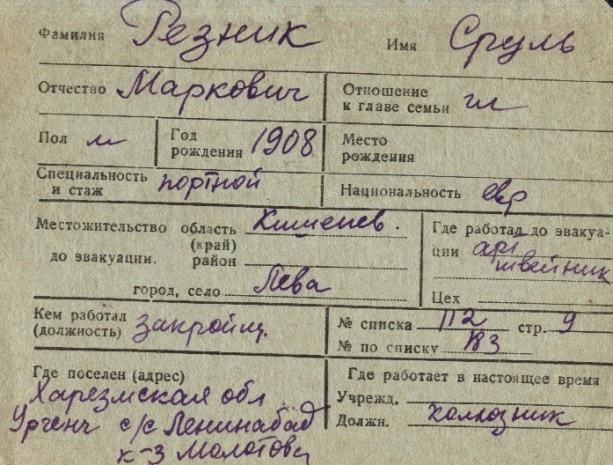 Фамилия Резник Имя Сруль
Отчество Маркович Отношение к главе семьи гл
Пол м Год рождения 1908 Место рождения
Специальность и стаж портной Национальность евр
Местожительство до эвакуации. область (край) Кишенев.
район
город, село Лева
Где работал до эвакуации арт швейник
Цех
Кем работал (должность) закройщ.
№ списка 112 стр. 9
№ по списку 183
Где поселен (адрес)
Харезмская обл
Ургенч с/с Ленинабад
к-з Молотова
Где работает в настоящее время
Учрежд.
Должн. колхозник